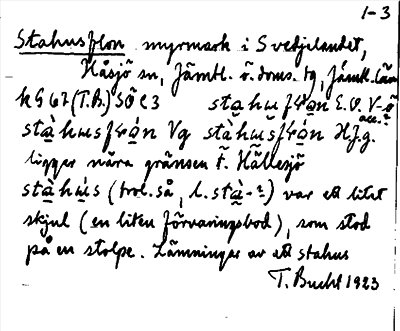 1-3
Stahusflon myrmark i Svedjelandet,
Håsjö sn, Jämtl. ö. doms. tg, Jämtl. län
KG 67 (T.B.) SÖ C3 stahusflon E.O. V-ö
acc.?
stàhusflón Vg stàhusflón Hj.g.
ligger nära gränsen t. Hällesjö
stàhús (trol. så, l. stà-?) var ett litet
skjul (en liten förvaringsbod), som stod
på en stolpe. Lämningar av ett stahus
T. Bucht 1923